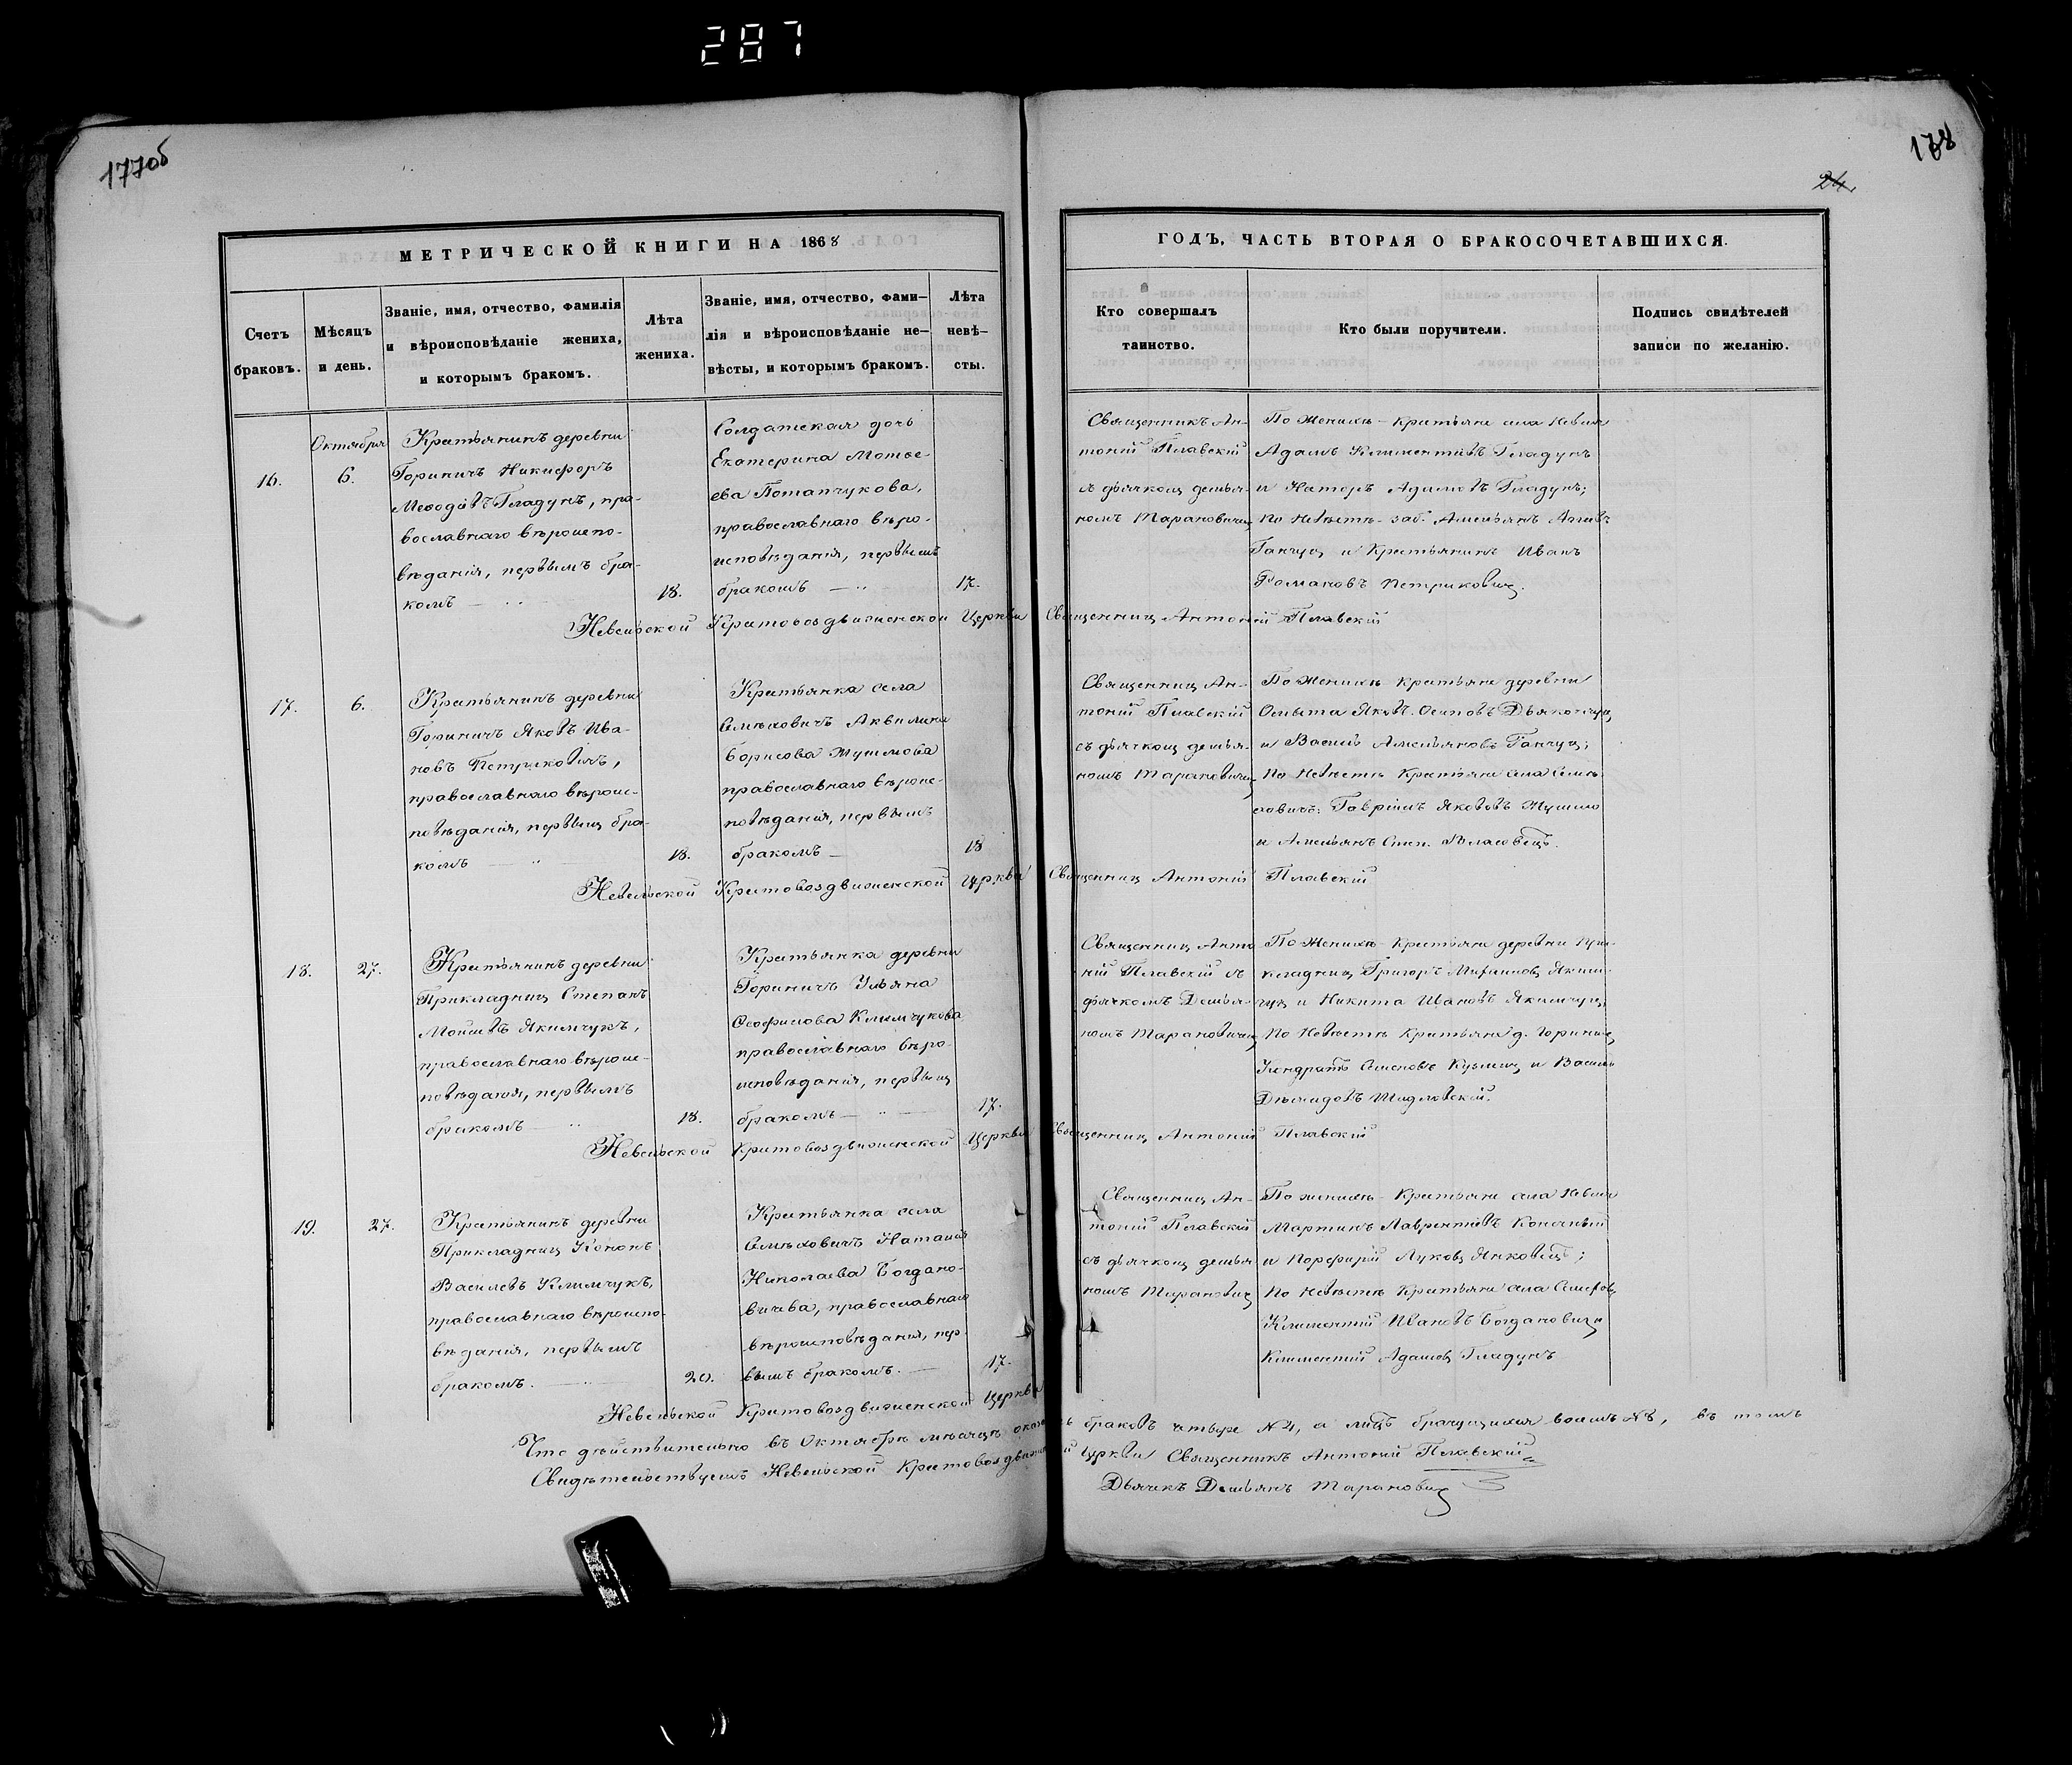 287
177об
178
24.
МЕТРИЧЕСКОЙ КНИГИ НА 1868
ГОДЪ, ЧАСТЬ ВТОРАЯ О БРАКОСОЧЕТАВШИХСЯ.
Счетъ браковъ.
Мѣсяцъ и день.
Званіе, имя, отчество, фамилія
и вѣроисповѣданіе жениха,
и которымъ бракомъ.
Лѣта
жениха.
Званіе, имя, отчество, фами-
лія и вѣроисповѣданіе не-
вѣсты, и которымъ бракомъ.
Лѣта
невѣ-
сты.
Кто совершалъ
таинство.
Кто были поручители.
Подпись свидѣтелей
записи по желанію.
16.
Октября
6.
Крестьянинъ деревни
Горичичъ Никифоръ
Меѳодіевъ Гладунъ, пра-
вославнаго вѣроиспо-
вѣданія, первымъ бра-
комъ
18.
Солдатская дочь
Екатерина Матѳе-
ева Потапчукова,
православнаго вѣро-
исповѣданія, первымъ
бракомъ
17.
Священникъ Ан-
тоній Плавскій
съ дьячкомъ Демья-
номъ Тарановичемъ
По Женихѣ - Крестьяне села Невля
Адамъ Климентіевъ Гладунъ
и Адамовъ Гладунъ;
по Невѣстѣ -
Ганчукъ и Крестьянинъ Иванъ
Романовъ Петриковичъ.
Невельской Крестовоздвиженской Церкви Священникъ Антоній Плавскій
17.
6.
Крестьянинъ деревни
Горичичъ Яковъ Ива-
новъ Петриковичъ,
православнаго вѣроис-
повѣданія, первымъ бра-
комъ
18.
Крестьянка села
Семѣховичъ Аквилина
Борисова Мушлова
православнаго вѣроис-
повѣданія, первымъ
бракомъ
18
Священникъ Ан-
тоній Плавскій
съ дьячкомъ Демья-
номъ Тарановичемъ
По Женихѣ Крестьяне деревни
Яковъ Осиповъ
и Василь Амельяновъ Ганчукъ;
по Невѣстѣ Крестьяне села Семѣ-
ховичъ: Гавріилъ Яковъ
и Амельянъ Степ. Власовецъ.
Невельской Крестовоздвиженской Церкви Священникъ Антоній Плавскій
18.
27.
Крестьянинъ деревни
Прикладникъ Степанъ
Моисѣевъ Якимчукъ,
православнаго вѣроис-
повѣданія, первымъ
бракомъ
18.
Крестьянка деревни
Горичичъ Ульяна
Ѳеофилова Климчукова
православнаго вѣро-
исповѣданія, первымъ
бракомъ
17.
Священникъ Анто-
ній Плавскій съ
дьячкомъ Демья-
номъ Тарановичемъ
По Женихѣ - Крестьяне деревни При-
кладникъ Григоръ Яким-
чукъ и Никита Ивановъ Якимчукъ,
по Невѣстѣ Крестьяне д. Горичичъ
Кондратъ Семеновъ Кузмичъ и Василь
Шидловскій.
Невельской Крестовоздвиженской Церкви Священникъ Антоній Плавскій
19.
27.
Крестьянинъ деревни
Прикладникъ Кононъ
Василевъ Климчукъ,
православнаго вѣроиспо-
вѣданія, первымъ
бракомъ.
20.
Крестьянка села
Семѣховичъ Наталія
Николаева Богдано-
вичева, православнаго
вѣроисповѣданія, пер-
вымъ бракомъ.
17.
Священникъ Ан-
тоній Плавскій
съ дьячкомъ Демья-
номъ Тарановичъ
По женихѣ - Крестьяне села Невля
Мартинъ Лаврентіевъ
и Порфирій Луковъ Янковецъ;
по Невѣстѣ Крестьяне села
Климентій Ивановъ Богдановичъ и
Климентій Адамовъ Гладунъ
Невельской Крестовоздвиженской Церкви
Что дѣйствительно въ Октябрѣ мѣсяцѣ браковъ четыре №4, а лицъ брачущихся восемь №8, въ томъ
Свидѣтельствуемъ Невельской Крестовоздвиженской Церкви Священникъ Антоній Плавскій
Дьячекъ Демьянъ Тарановичъ